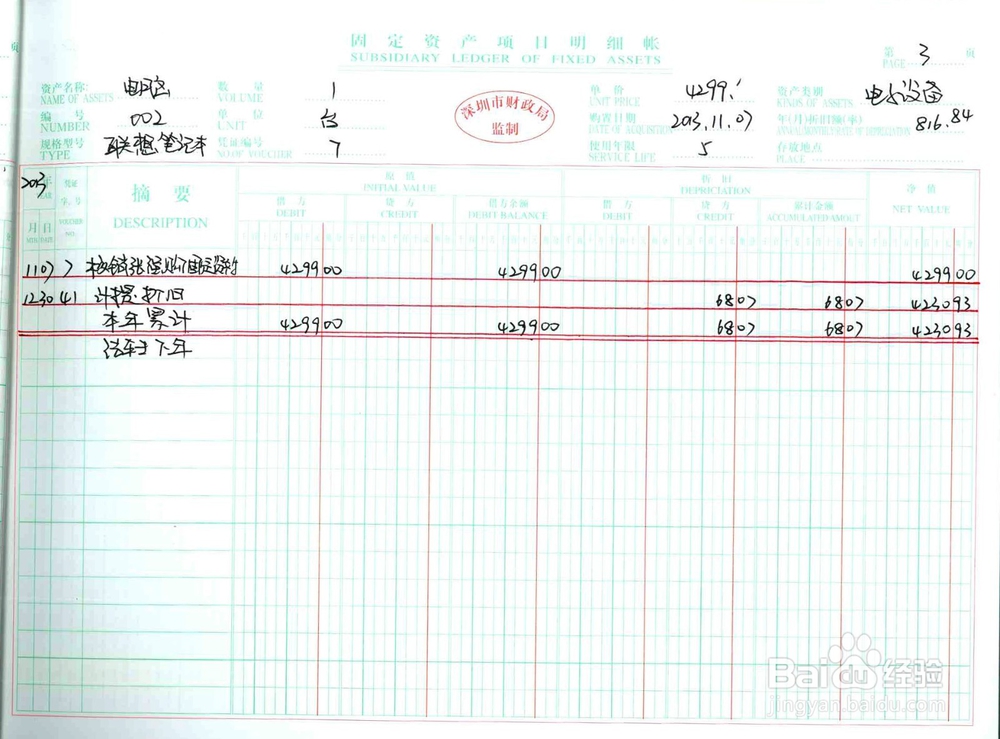 固定资产项目明细帐
SUBSIDIARY LEDGER OF FIXED ASSETS
第 3 页
PAGE
资产名称: 电脑 数量 1 单价 4299.- 资产类别 电子设备
NAME OF ASSETS VOLUME UNIT PRICE KINDS OF ASSETS
编号 002 单位 台 购置日期 2013.11.07 年(月)折旧额(率) 816.84
NUMBER UNIT DATE OF ACQUISITION ANNUAL(MONTHLY)RATE OF DEPRECIATION
规格型号 联想笔记本 凭证编号 7 使用年限 5 存放地点
TYPE NO OF VOUCHER SERVICE LIFE PLACE
深圳市财政局
监制
2013年 凭证 摘要 原值 折旧 净值
YEAR 字,号 DESCRIPTION INITIAL VALUE DEPRICIATION NET VALUE
月 日 VOUCHER NO. 借方 贷方 借方余额 借方 贷方 累计金额
MTH DATE DEBIT CREDIT DEBIT BALANCE DEBIT CREDIT ACCUMULATED AMOUT
11 07 7 核销张 购固定资产 4299 00 4299 00 4299 00
12 30 41 计提折旧 68 07 68 07 4230 93
本年累计 4299 00 4299 00 68 07 68 07 4230 93
结转下年
Baidu经验
jingyan.baidu.com